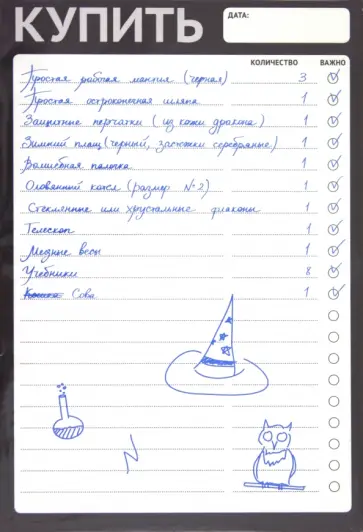 КУПИТЬ
ДАТА:
КОЛИЧЕСТВО ВАЖНО
Простая рабочая мантия (черная) 3
Простая остроконечная шляпа 1
Защитные перчатки (из кожи дракона) 1
Зимний плащ (черный, застежки серебряные) 1
Волшебная палочка 1
Оловянный котел (размер №2) 1
Стеклянные или хрустальные флаконы 1
Телескоп 1
Медные весы 1
Учебники 8
Сова 1